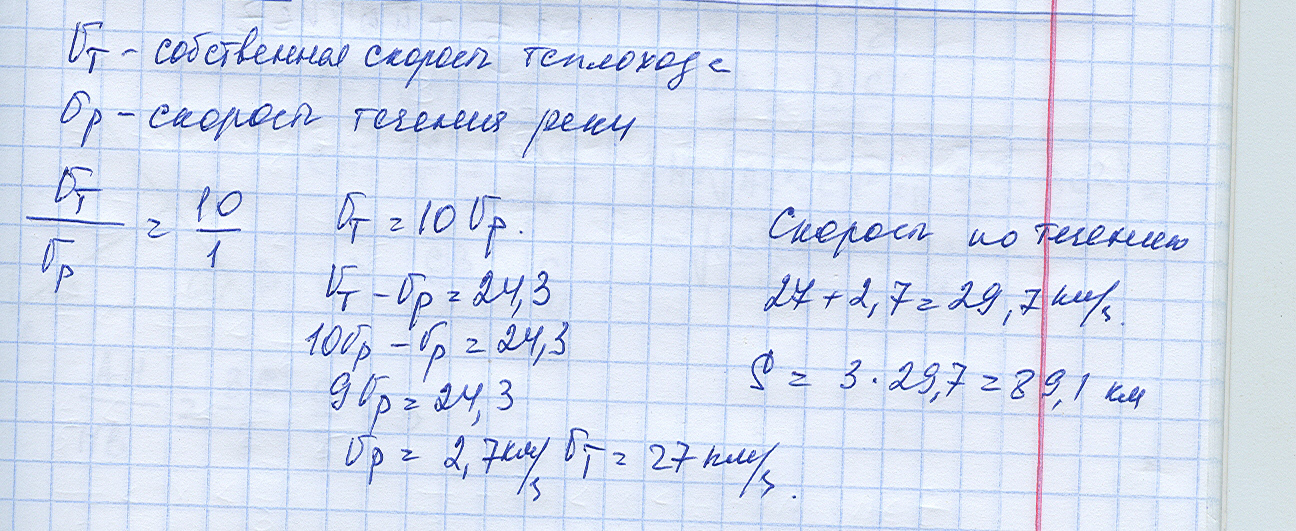 Vт – собственная скорость теплохода
Vр – скорость течения реки
Vт/Vр = 10/1
Vт = 10 Vр.
Vт – Vр = 24,3
10Vр – Vр = 24,3
9Vр = 24,3
Vр = 2,7 км/ч Vт = 27 км/ч.
Скорость по течению
27 + 2,7 = 29,7 км/ч.
S = 3 · 29,7 = 89,1 км